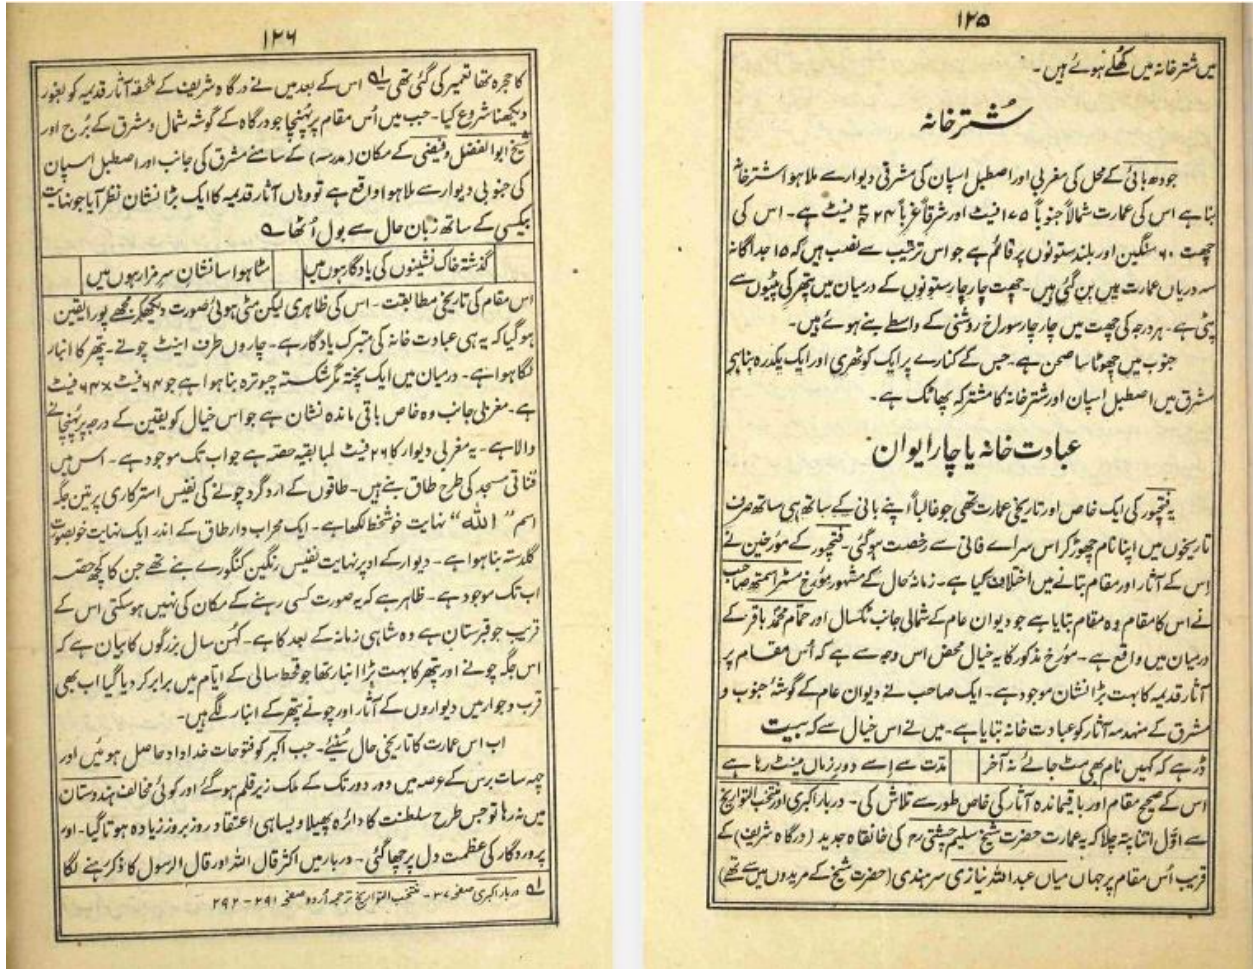 ۱۲۵
میں شترخانہ میں کھُلے ہوئے ہیں۔
شُتر خانہ
جودھ بائی کے محل کی مغربی اور اصطبل اسپان کی مشرقی دیوار سے ملا ہوا اشتر خانہ
بنا ہے اس کی عمارت شمالاً جنوباً ۱۷۵ فیٹ اور شرقاً غرباً ۲۴ فیٹ ہے۔ اس کی
چھت ۶۰ سنگین اور بلند ستونوں پر قائم ہے جو اس ترتیب سے نصب ہیں کہ ۱۵ جداگانہ
سہ دریاں عمارت میں بن گئی ہیں۔ چھت چار چار ستونوں کے درمیان میں پتھر کی پٹیوں سے
پٹی ہے۔ ہر درجہ کی چھت میں چار چار سوراخ روشنی کے واسطے بنے ہوئے ہیں۔
جنوب میں چھوٹا سا صحن ہے۔ جس کے کنارے پر ایک کوٹھری اور ایک یکدرہ بنا ہی
مشرق میں اصطبل اسپان اور شتر خانہ کا مشترکہ پھاٹک ہے۔
عبادت خانہ یا چار ایوان
یہ فتحپور کی ایک خاص اور تاریخی عمارت تھی جو غالباً اپنے بانی کے ساتھ ہی ساتھ صرف
تاریخوں میں اپنا نام چھوڑ کر اس سراے فانی سے رخصت ہو گئی۔ فتحپور کے مورخین نے
اِس کے آثار اور مقام بتانے میں اختلاف کیا ہے۔ زمانہ حال کے مشہور مؤرخ مسٹر اسمتھ صاحب
نے اس کا مقام وہ مقام بتایا ہے جو دیوان عام کے شمالی جانب ٹکسال اور حمّام محمد باقر کے
درمیان میں واقع ہے۔ مورخ مذکور کا یہ خیال محض اس وجہ سے ہے کہ اُس مقام پر
آثار قدیمہ کا بہت بڑا نشان موجود ہے۔ ایک صاحب نے دیوان عام کے گوشۂ جنوب و
مشرق کے منہدمہ آثار کو عبادت خانہ بتایا ہے۔ میں نے اس خیال سے کہ بیت
ڈر ہے کہ کہیں نام بھی مٹ جائے نہ آخر مدت سے اِسے دور زماں میٹ رہا ہے
اس کے صحیح مقام اور باقیماندہ آثار کی خاص طور سے تلاش کی۔ دربار اکبری اور منتخب التواریخ
سے اوّل اتنا پتہ چلا کہ یہ عمارت حضرت شیخ سلیم چشتی رح کی خانقاہ جدید (درگاہ شریف) کے
قریب اُس مقام پر جہاں میاں عبد اللہ نیازی سرہندی (حضرت شیخ کے مریدوں میں سے تھے)
۱۲۶
کا حجرہ تھا تعمیر کی گئی تھی ۱؎ اس کے بعد میں نے درگاہ شریف کے ملحقہ آثار قدیمہ کو بغور
دیکھنا شروع کیا۔ جب میں اُس مقام پر پہنچا جو درگاہ کے گوشہ شمال و مشرق کے بُرج اور
شیخ ابو الفضل و فیضی کے مکان (مدرسہ) کے سامنے مشرق کی جانب اور اصطبل اسپان
کی جنوبی دیوار سے ملا ہوا واقع ہے تو وہاں آثار قدیمہ کا ایک بڑا نشان نظر آیا جو نہایت
بیکسی کے ساتھ زبان حال سے بول اُٹھا ؎
گذشتہ خاک نشینوں کی یادگار ہوں میں مٹا ہوا سا نشانِ سرِ مزار ہوں میں
اس مقام کی تاریخی مطابقت۔ اس کی ظاہری لیکن مٹی ہوئی صورت دیکھکر مجھے پورا یقین
ہو گیا کہ یہ ہی عبادت خانہ کی متبرک یادگار ہے۔ چاروں طرف اینٹ چونے۔ پتھر کا انبار
لگا ہوا ہے۔ درمیان میں ایک پختہ مگر شکستہ چبوترہ بنا ہوا ہے جو ۶۴ فیٹ × ۶۴ فیٹ
ہے۔ مغربی جانب وہ خاص باقی ماندہ نشان ہے جو اس خیال کو یقین کے درجہ پر پہنچانے
والا ہے۔ یہ مغربی دیوار کا ۲۶ فیٹ لمبا بقیہ حصہ ہے جو اب تک موجود ہے۔ اس میں
قناتی مسجد کی طرح طاق بنے ہیں۔ طاقوں کے ارد گرد چونے کی نفیس استرکاری پر تین جگہ
اسم "اللّٰہ" نہایت خوشخط لکھا ہے۔ ایک محراب دار طاق کے اندر ایک نہایت خوبصورت
گلدستہ بنا ہوا ہے۔ دیوار کے اوپر نہایت نفیس رنگین کنگورے بنے تھے جن کا کچھ حصہ
اب تک موجود ہے۔ ظاہر ہے کہ یہ صورت کسی رہنے کے مکان کی نہیں ہو سکتی اس کے
قریب جو قبرستان ہے وہ شاہی زمانہ کے بعد کا ہے۔ کہن سال بزرگوں کا بیان ہے کہ
اس جگہ چونے اور پتھر کا بہت بڑا انبار تھا جو قحط سالی کے ایام میں برابر کر دیا گیا اب بھی
قرب و جوار میں دیواروں کے آثار اور چونے پتھر کے انبار لگے ہیں۔
اب اس عمارت کا تاریخی حال سُنئے۔ جب اکبر کو فتوحات خداداد حاصل ہوئیں اور
چھ سات برس کے عرصہ میں دور دور تک کے ملک زیر قلم ہو گئے اور کوئی مخالف ہندوستان
میں نہ رہا تو جس طرح سلطنت کا دائرہ پھیلا ویسا ہی اعتقاد روز بروز زیادہ ہوتا گیا۔ اور
پروردگار کی عظمت دل پر چھا گئی۔ دربار میں اکثر قال اللہ اور قال الرسول کا ذکر رہنے لگا
۱؎ دربار اکبری صفحہ ۳۷۔ منتخب التواریخ ترجمہ اُردو صفحہ ۲۹۱-۲۹۲